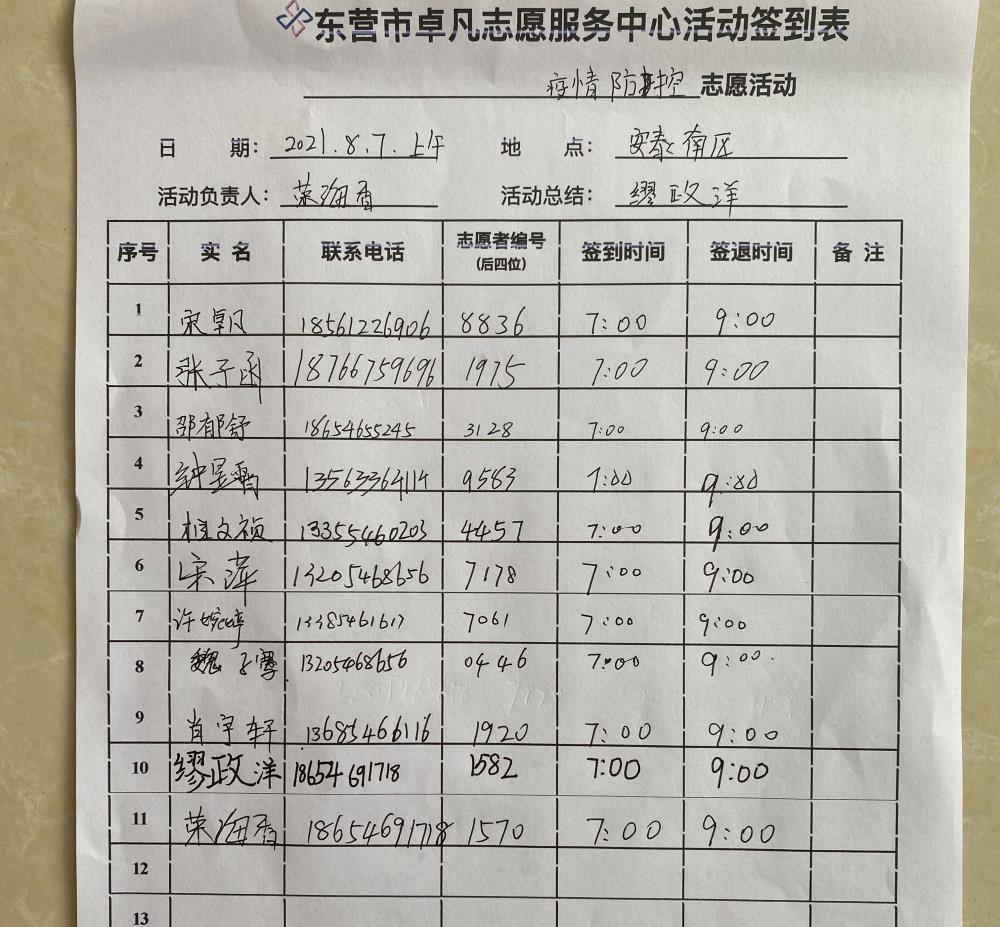 东营市卓凡志愿服务中心活动签到表
疫情防控 志愿活动
日 期: 2021.8.7.上午 地 点: 安泰南区
活动负责人: 荣海香 活动总结: 缪政洋
序号 实名 联系电话 志愿者编号(后四位) 签到时间 签退时间 备注
1 宋卓凡 18561226906 8836 7:00 9:00
2 张子函 18766759696 1975 7:00 9:00
3 邵郁舒 18654655245 3128 7:00 9:00
4 13563364114 9583 7:00 9:00
5 桂文祯 13355460203 4457 7:00 9:00
6 宋萍 13205468656 7178 7:00 9:00
7 许婉婷 13385461617 7061 7:00 9:00
8 魏子骞 13205468656 0446 7:00 9:00.
9 肖宇轩 13685466116 1920 7:00 9:00
10 缪政洋 18654691718 1582 7:00 9:00
11 荣海香 18654691718 1570 7:00 9:00
12
13